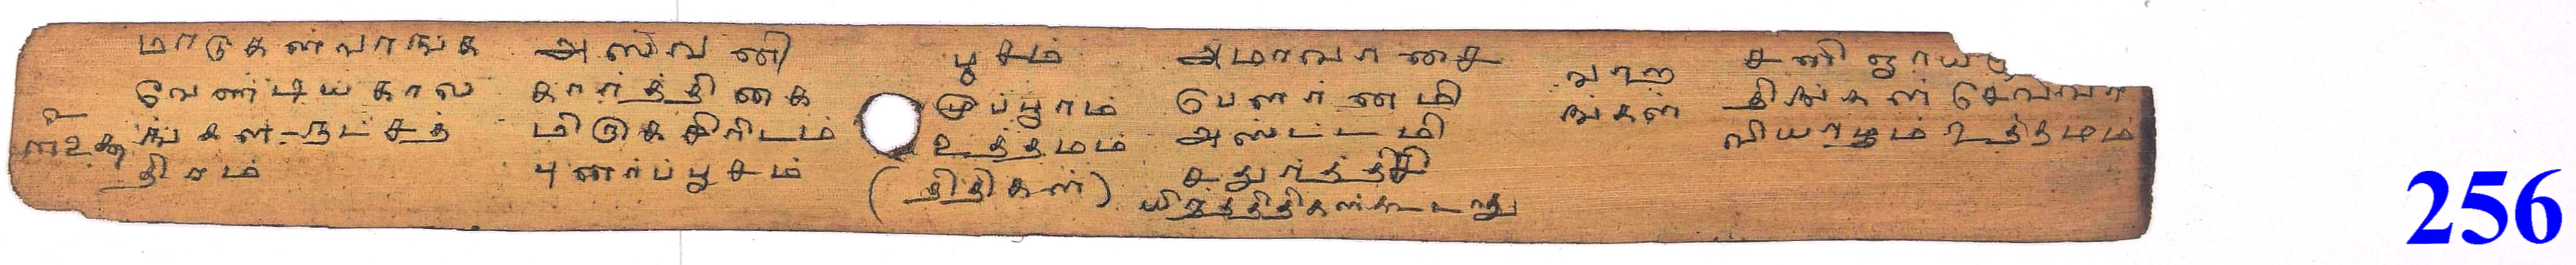 மாடுகள்வாங்க அஸ்வனி பூசம் அமாவாசை சனி ஞாயி
வேண்டியகால கார்த்திகை முப்பூரம் பெளர்னமி வாற திங்கள் செவ்வா
ங்கள்-நட்சத் மிருகசிரிடம் உத்தமம் அஸ்ட்டமி ங்கள் வியாழம் உத்தமம்
திரம் புனர்ப்பூசம் (திதிகள்) சதுர்த்தசி
யித்திதிகள்கூடாது
256